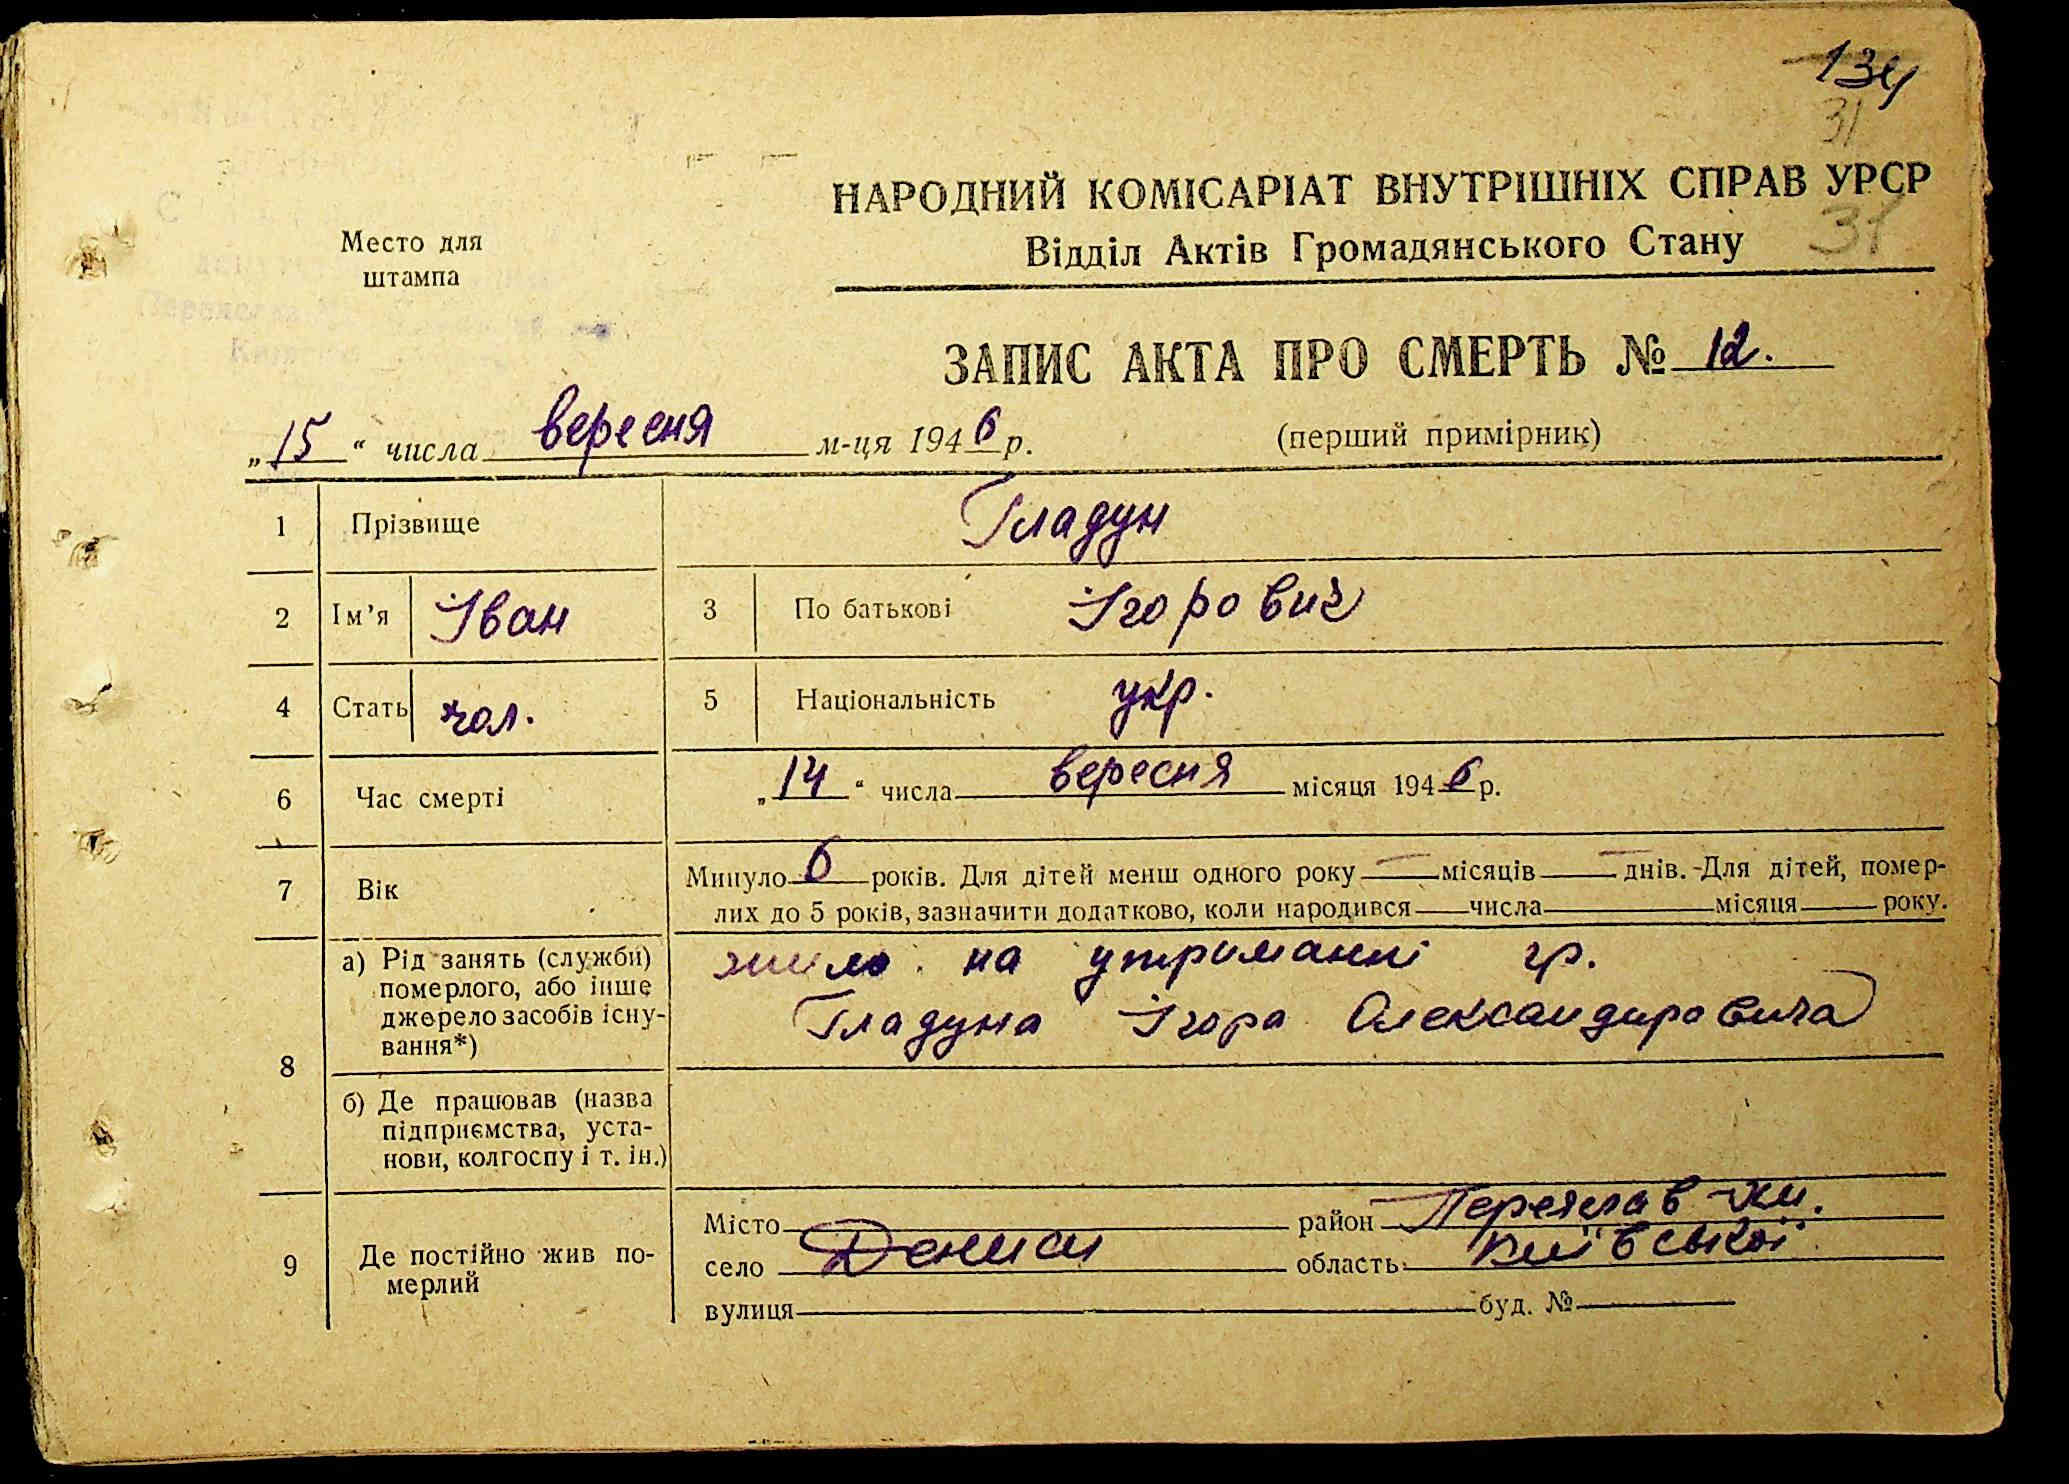 134
31
НАРОДНИЙ КОМІСАРІАТ ВНУТРІШНІХ СПРАВ УРСР
31
Відділ Актів Громадянського Стану
Место для
штампа
ЗАПИС АКТА ПРО СМЕРТЬ № 12.
„15“ числа вересня м-ця 1946 р.
(перший примірник)
1 Прізвище Гладун
2 Ім'я Іван 3 По батькові Ігорович
4 Стать чол. 5 Національність укр.
6 Час смерті „14“ числа вересня місяця 1946 р.
7 Вік Минуло 6 років. Для дітей менш одного року — місяців — днів. Для дітей, помер-
лих до 5 років, зазначити додатково, коли народився числа місяця року.
8 а) Рід занять (служби)
померлого, або інше
джерело засобів існу-
вання*)
жило на утриманні гр.
Гладуна Ігора Олександровича
б) Де працював (назва
підприємства, уста-
нови, колгоспу і т. ін.)
9 Де постійно жив по-
мерлий
Місто район Переяслав-Хм.
село Дениси область Київської
вулиця буд. №